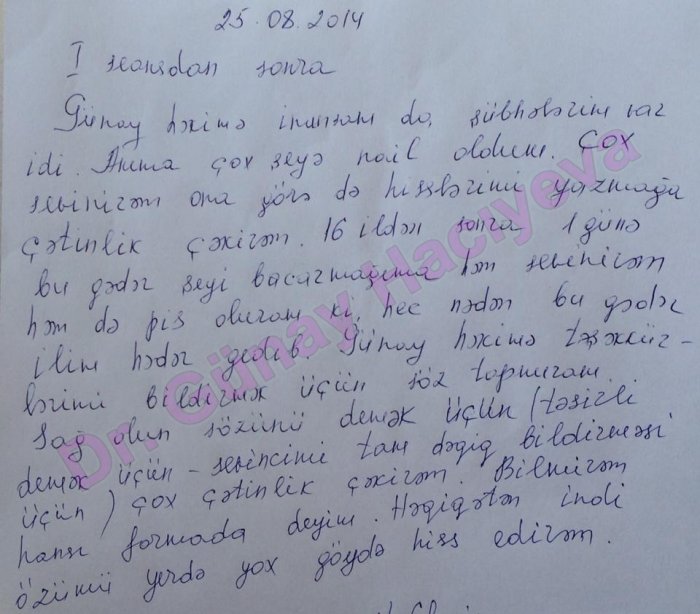 25.08.2014
I seansdan sonra
Günay həkimə inansam da, şübhələrim var
idi. Amma çox şeyə nail oldum. Çox
sevinirəm ona görə də hisslərimi yazmağa
çətinlik çəkirəm. 16 ildən sonra 1 günə
bu qədər şeyi bacarmağıma həm sevinirəm
həm də pis oluram ki, heç nədən bu qədər
ilim hədər gedib. Günay həkimə təşəkkür-
lərimi bildirmək üçün söz tapmıram.
Sağ olun sözünü demək üçün (təsirli
demək üçün - sevincimi tam dəqiq bildirməsi
üçün) çox çətinlik çəkirəm. Bilmirəm
hansı formada deyim. Həqiqətən indi
özümü yerdə yox göydə hiss edirəm.
Dr. Günay Hacıyeva